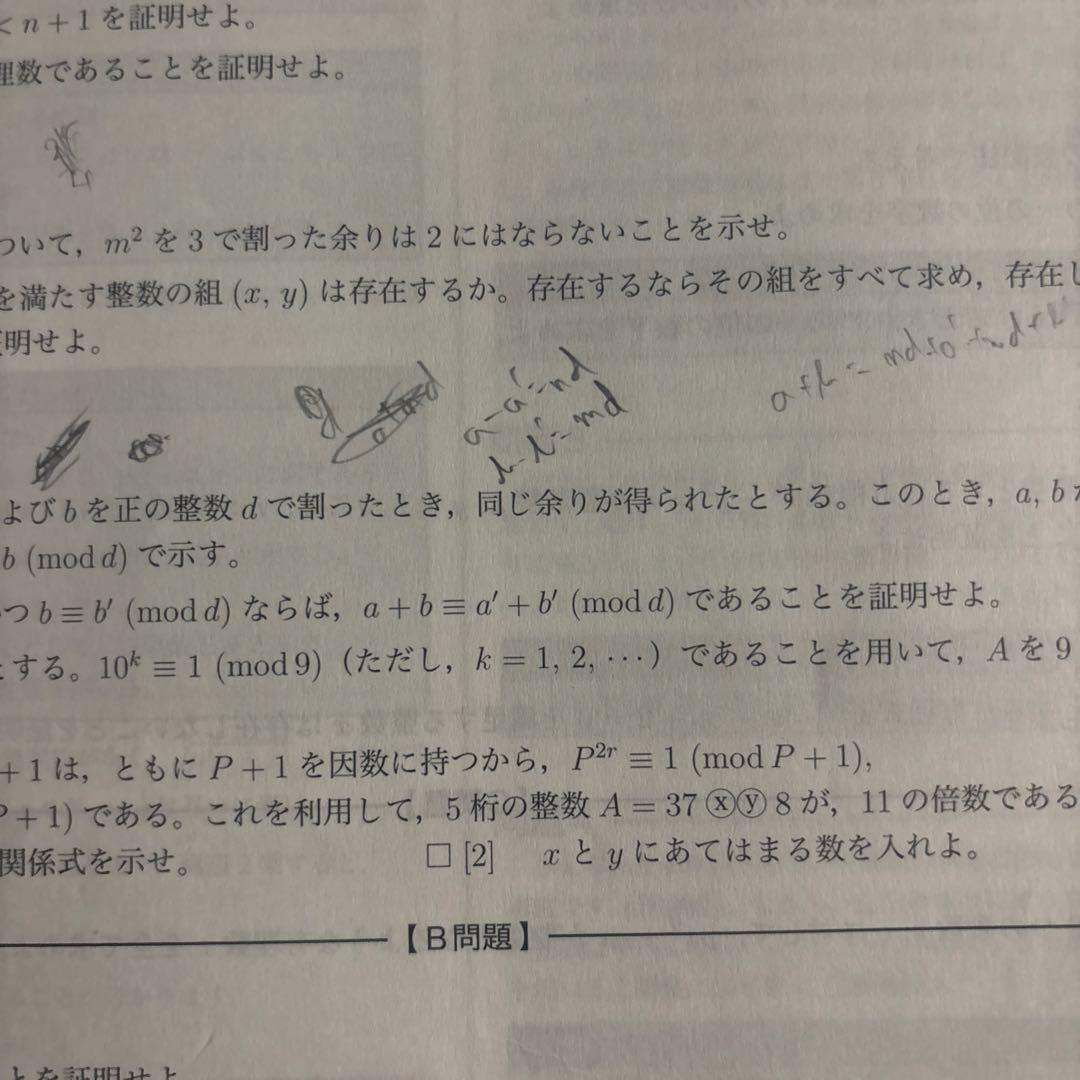 < n + 1 を証明せよ。
理数であることを証明せよ。
ついて，m² を 3 で割った余りは 2 にはならないことを示せ。
を満たす整数の組 (x, y) は存在するか。存在するならその組をすべて求め，存在し
証明せよ。
a - a' = nd
b - b' = md
a + b =
よび b を正の整数 d で割ったとき，同じ余りが得られたとする。このとき，a, b
b (mod d) で示す。
つ b ≡ b′ (mod d) ならば，a + b ≡ a′ + b′ (mod d) であることを証明せよ。
とする。10ᵏ ≡ 1 (mod 9)（ただし，k = 1, 2, ⋯）であることを用いて，A を 9
+ 1 は，ともに P + 1 を因数に持つから，P²ʳ ≡ 1 (mod P + 1),
P + 1) である。これを利用して，5 桁の整数 A = 37 ⓧⓨ 8 が，11 の倍数である
関係式を示せ。 □ [2] x と y にあてはまる数を入れよ。
【B問題】
とを証明せよ